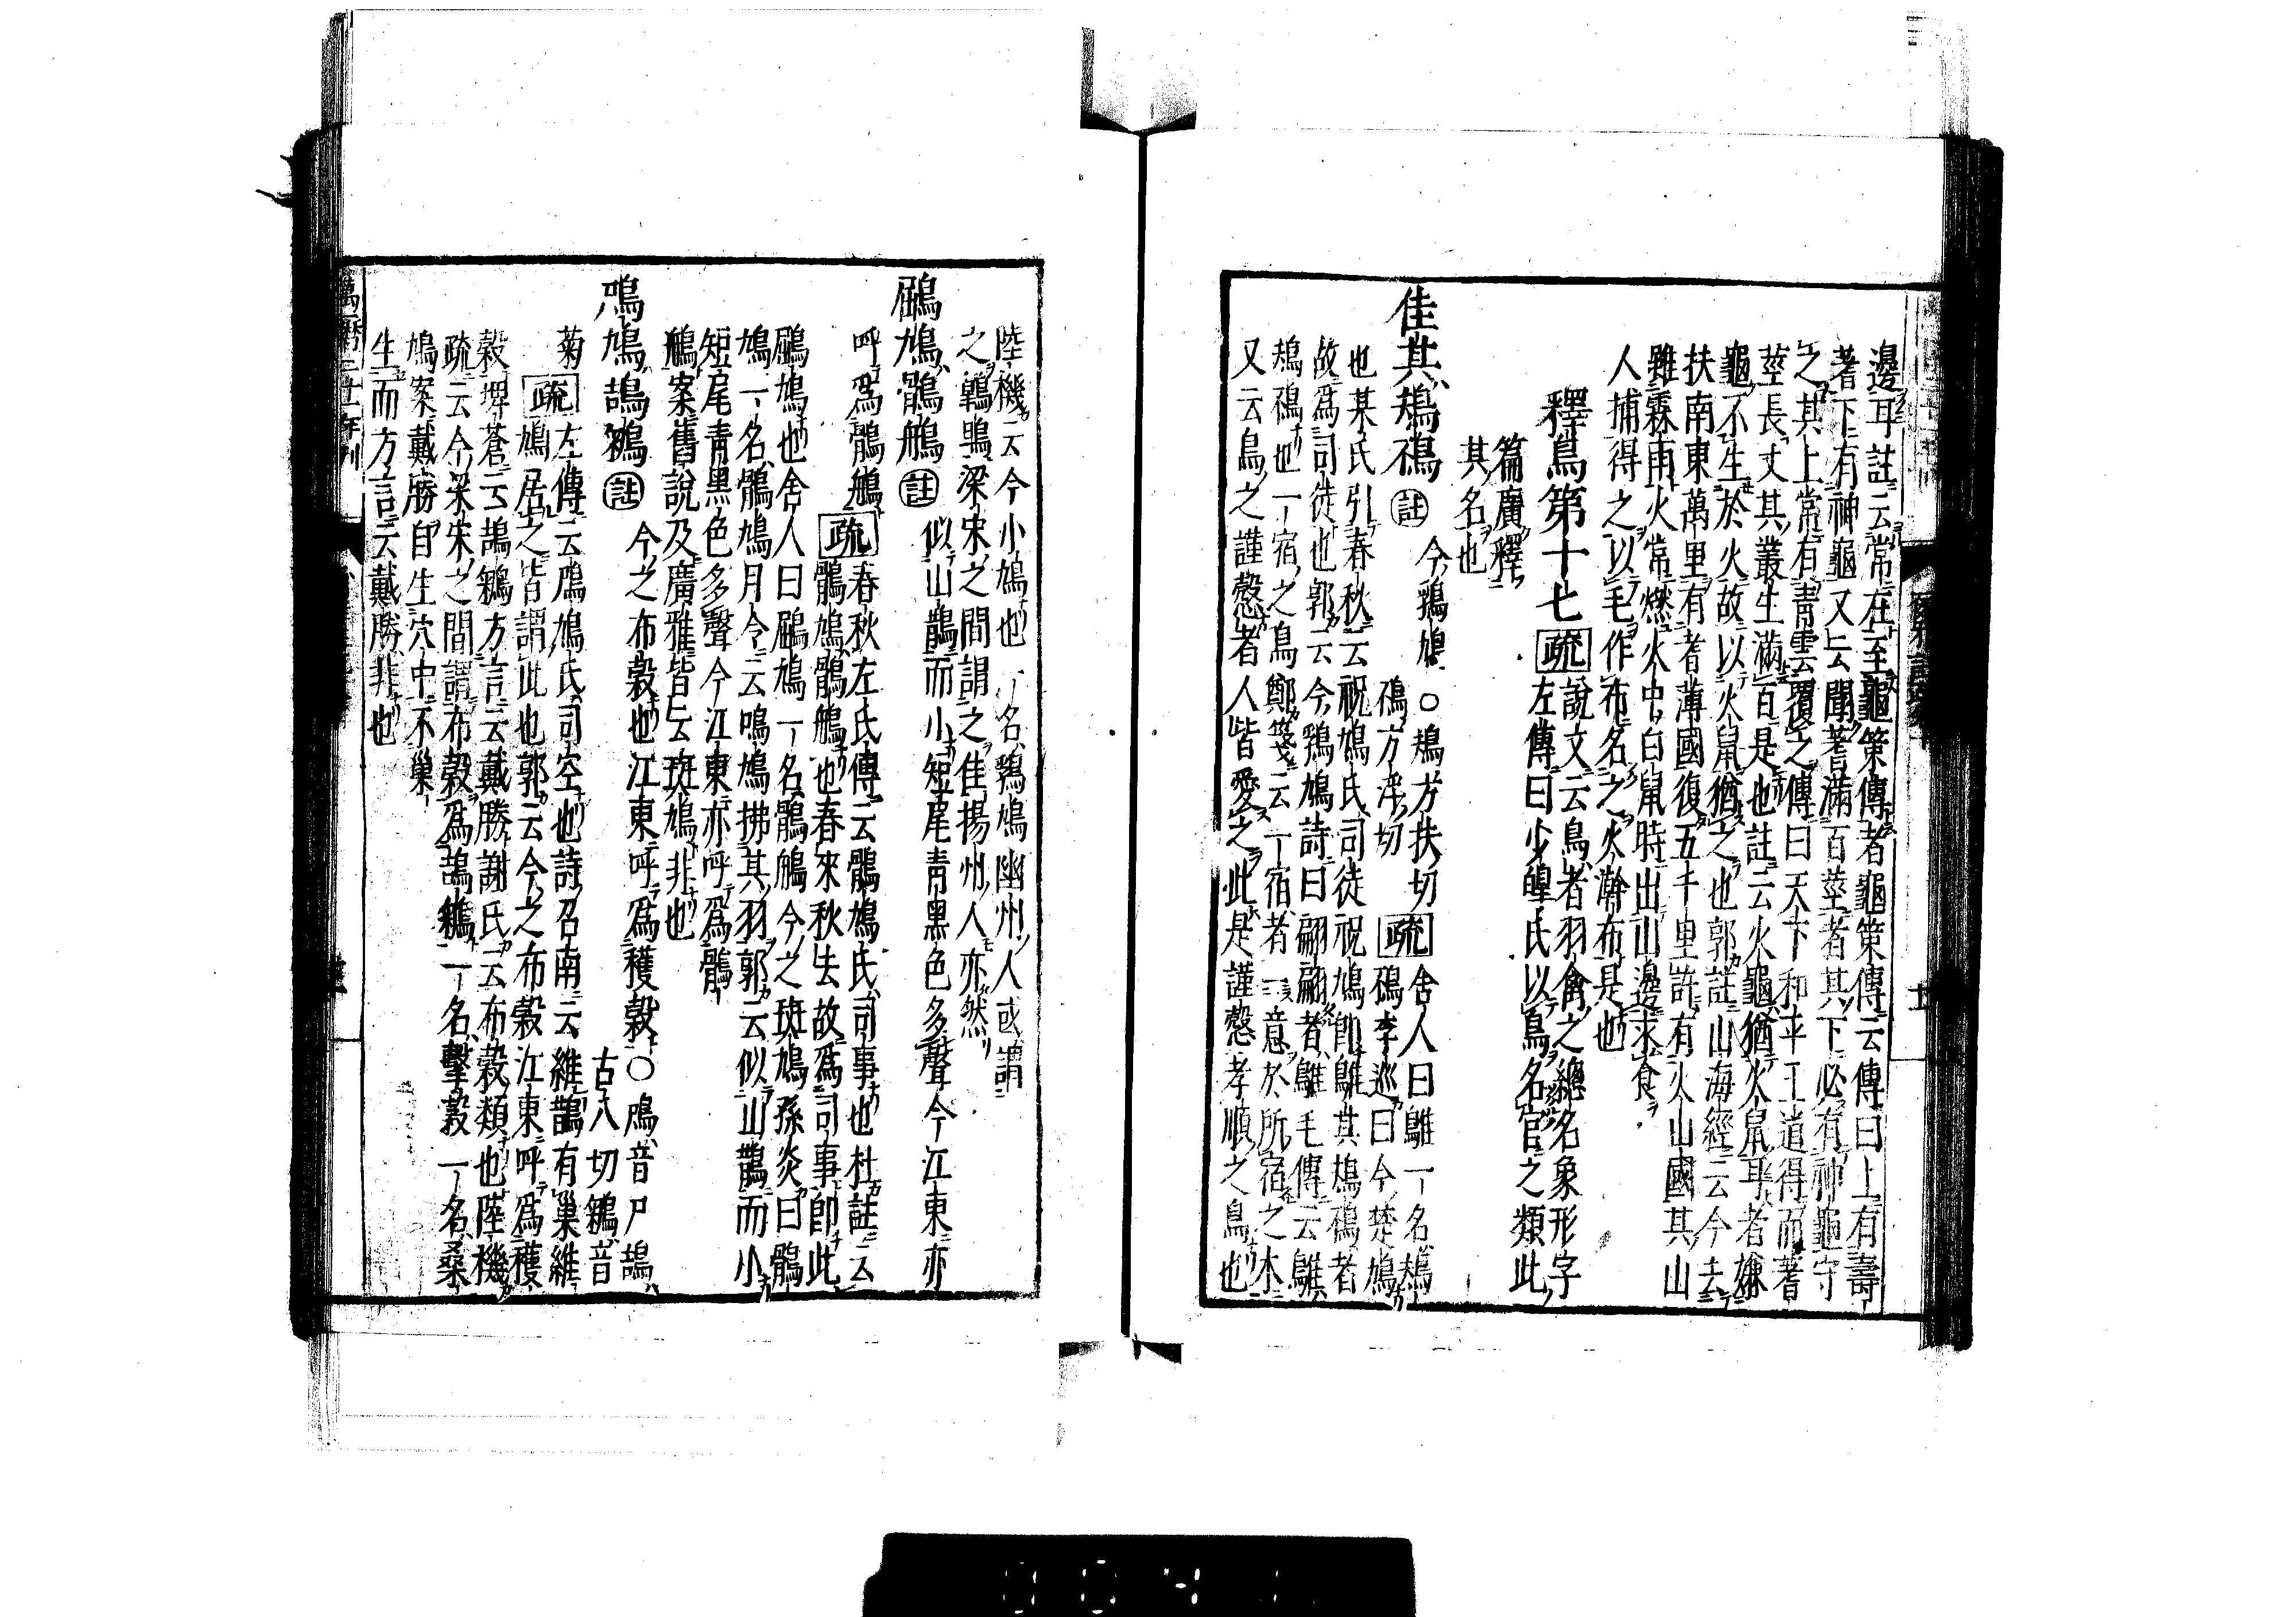 邊耳註云常在至龜策傳者龜策傳云傳曰上有壽
蓍下有神龜又云聞蓍滿百莖者其下必有神龜守
之其上常有靑雲覆之傳曰天下和平王道得而蓍
莖長丈其叢生滿百是也註云火龜猶火鼠耳者嫌
龜不生於火故以火鼠猶之也郭註山海經云今去
扶南東萬里有耆薄國復五千里許有火山國其山
雖霖雨火常燃火中白鼠時出山邊求食
人捕得之以毛作布名之火澣布是也
釋鳥第十七 疏 說文云鳥者羽禽之總名象形字
左傳曰少皥氏以鳥名官之類此
篇廣釋
其名也
隹其鳺鴀 註 今鵓鳩 ○鳺方扶切
鴀方浮切 疏 舍人曰鵻一名鳺
鴀李巡曰今楚鳩
也某氏引春秋云祝鳩氏司徒祝鳩卽鵻其鳺鴀者
故爲司徒也郭云今鵓鳩詩曰翩翩者鵻毛傳云鵻
鳺鴀也一宿之鳥鄭箋云一宿者一意於所宿之木
又云鳥之謹愨者人皆愛之此是謹愨孝順之鳥也
陸機云今小鳩也一名鵓鳩幽州人或謂
之鷱鵙梁宋之間謂之隹揚州人亦然
鶌鳩鶻鵃 註 似山鵲而小短尾靑黑色多聲今江東亦
呼爲鶻鵃 疏 春秋左氏傳云鶻鳩氏司事也杜註云
鶻鳩鶻鵃也春來秋去故爲司事卽此
鶌鳩也舍人曰鶌鳩一名鶻鵃今之斑鳩孫炎曰鶻
鳩一名鳴鳩月令云鳴鳩拂其羽郭云似山鵲而小
短尾靑黑色多聲今江東亦呼爲鶻
鵃案舊說及廣雅皆云斑鳩非也
鳲鳩鴶鵴 註 今之布穀也江東呼爲穫穀○鳲音尸鴶
古八切鵴音
菊 疏 左傳云鳲鳩氏司空也詩召南云維鵲有巢維
鳩居之皆謂此也郭云今之布穀江東呼爲穫
穀埤蒼云鴶鵴方言云戴勝謝氏云布穀類也陸機
疏云今梁宋之間謂布穀爲鴶鵴一名擊穀一名桑
鳩案戴勝自生穴中不巢
生而方言云戴勝非也
萬曆二十一年刋